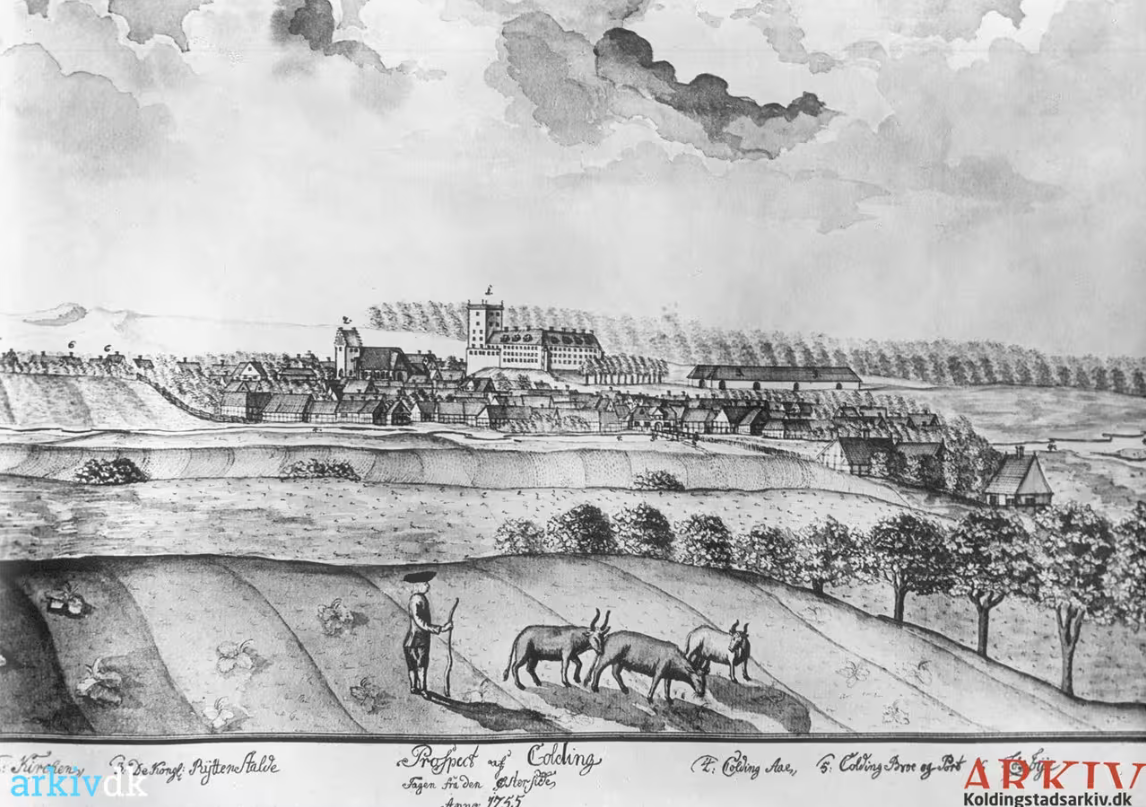 : Kirchen,
3: De Kongl: Rÿtter Stalde
Prospect af Colding,
Tagen frå den Øster side,
Anno 1755
4: Colding Aae,
5: Colding Broe og Port
6
6
arkivdk
ARKIV
Koldingstadsarkiv.dk